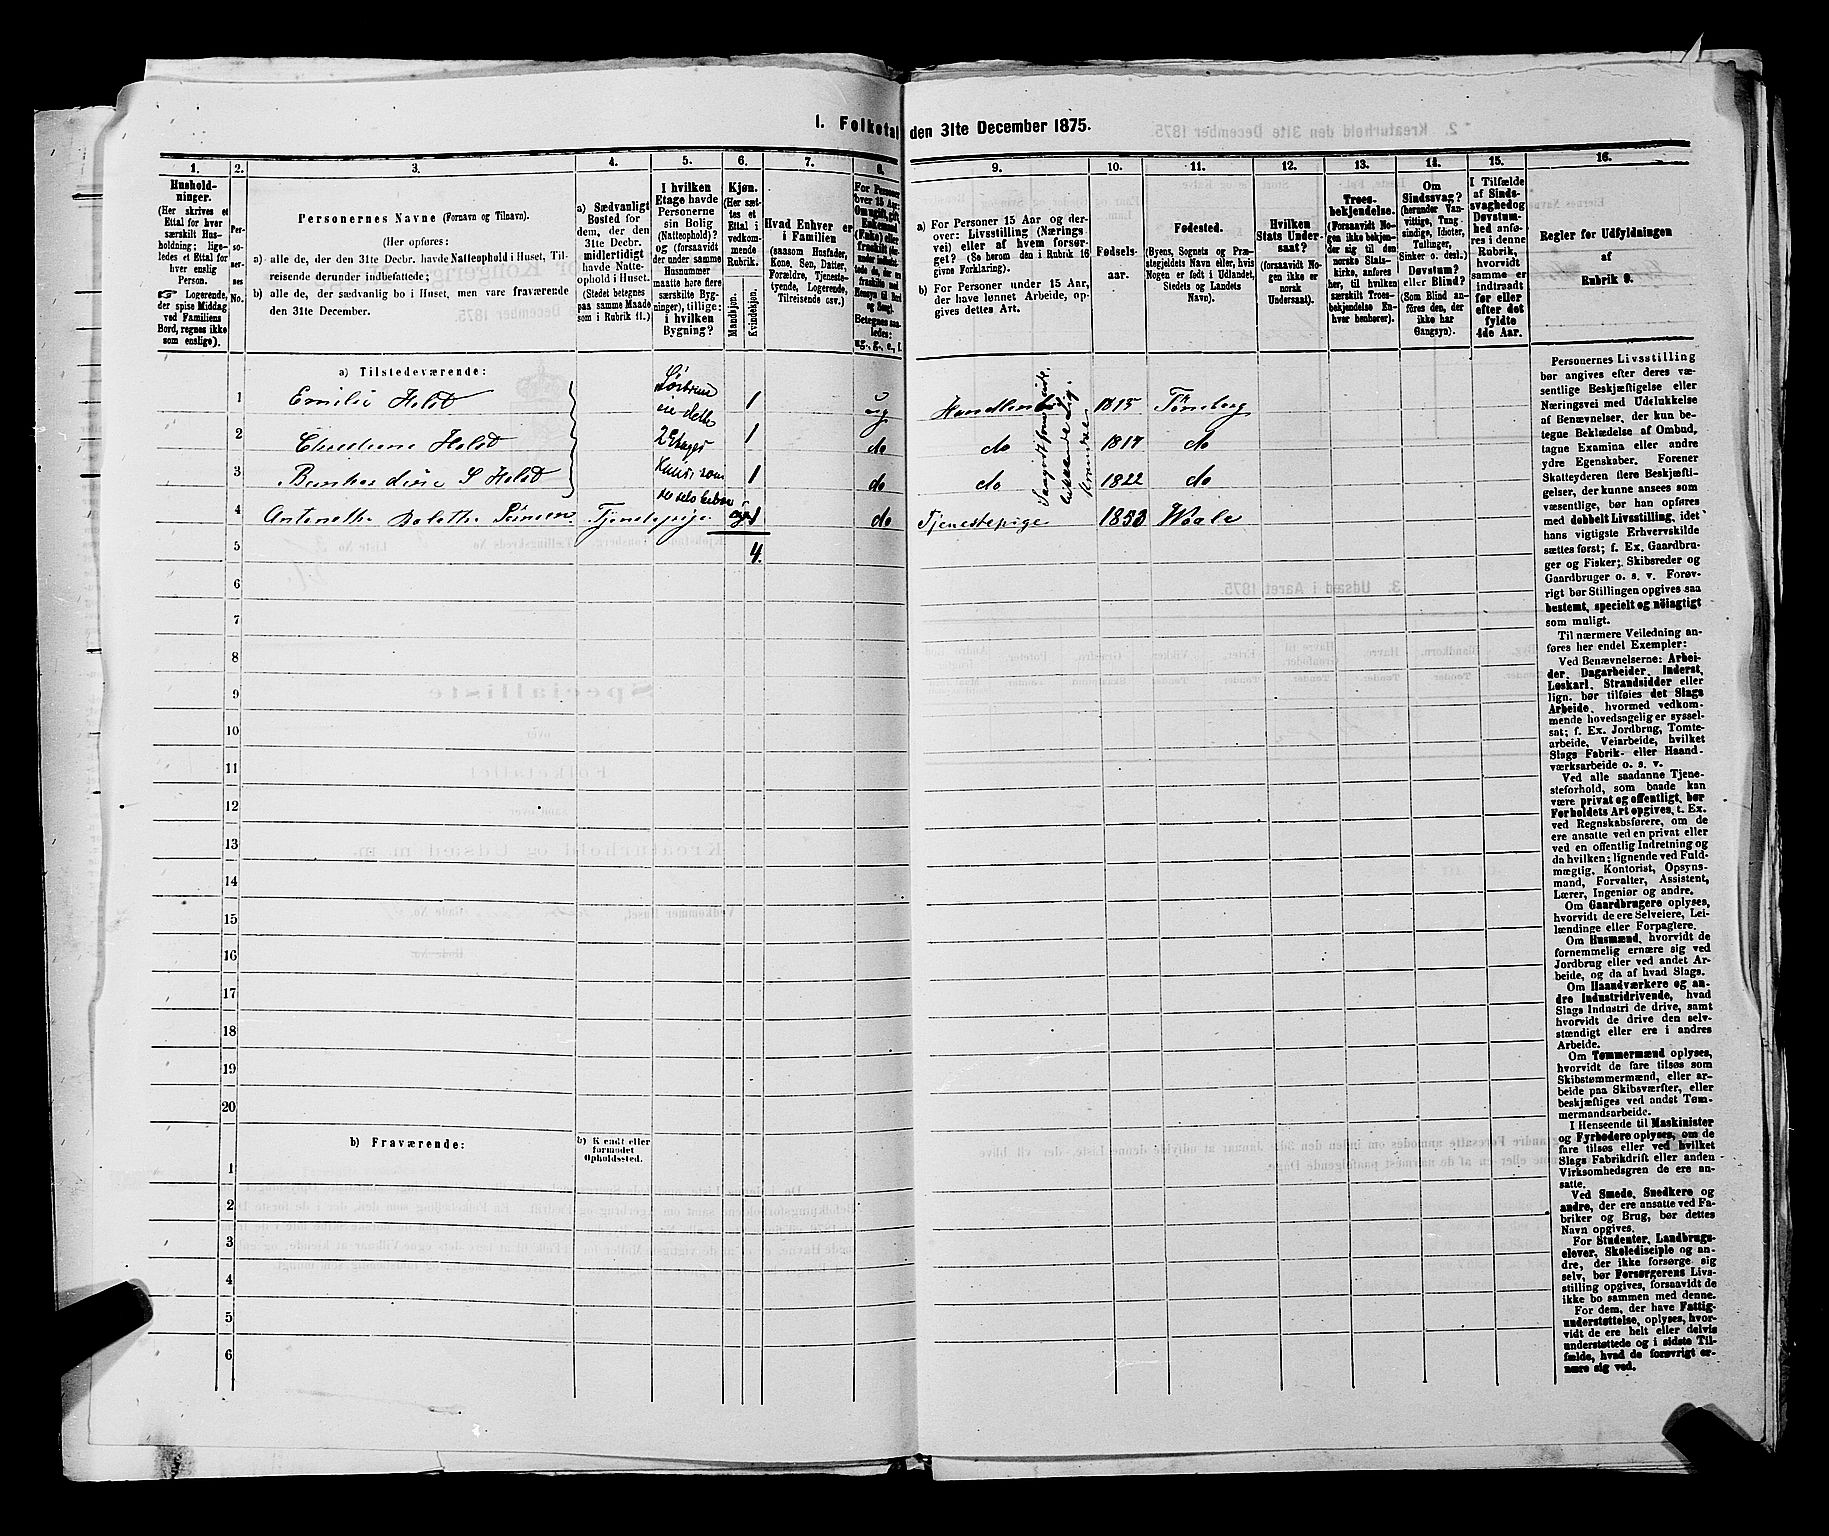 I. Folketal den 31te December 1875.
1. 2. 3. 4. 5. 6. 7. 8. 9. 10. 11. 12. 13. 14. 15. 16.
Hushold-
ninger.
(Her skrives et
Ettal for hver
særskilt Hus-
holdning; lige-
ledes et Ettal for
hver enslig
Person.
☞ Logerende,
der spise Middag
ved Familiens
Bord, regnes ikke
som enslige).
Per-
so-
ner-
nes
No.
Personernes Navne (Fornavn og Tilnavn).
(Her opføres:
a) alle de, der den 31te Decbr. havde Natteophold i Huset, Til-
reisende derunder indbefattede;
b) alle de, der sædvanlig bo i Huset, men vare fraværende
den 31te December.
a) Sædvanligt
Bosted for
dem, der den
31te Decbr.
midlertidigt
havde Natte-
ophold i Huset.
(Stedet betegnes
paa samme Maade
som i Rubrik 11.)
I hvilken
Etage havde
Personerne
sin Bolig
(Natteophold)?
og (forsaavidt
der under samme
Husnummer
maatte høre flere
særskilte Byg-
ninger), tillige:
i hvilken
Bygning?
Kjøn.
(Her sæt-
tes et
Ettal i
vedkom-
mende
Rubrik.
Mandkjøn.
Kvindekjøn.
Hvad Enhver er
i Familien
(saasom Husfader,
Kone, Søn, Datter,
Forældre, Tjeneste-
tyende, Logerende,
Tilreisende osv.)
For Personer
over 15 Aar:
Om ugift, gift,
Enkemand
(Enke) eller
fraskilt
Betegnes saa-
ledes:
ug., g., e., f.
a) For Personer 15 Aar og der-
over: Livsstilling (Nærings-
vei) eller af hvem forsør-
get? (Se herom den i Rubrik 16
givne Forklaring).
b) For Personer under 15 Aar,
der have lønnet Arbeide, op-
gives dettes Art.
Fødsels-
aar.
Fødested.
(Byens, Sognets og Præ-
stegjeldets Navn eller, hvis
Nogen er født i Udlandet,
Stedets og Landets
Navn).
Hvilken
Stats Under-
saat?
(forsaavidt No-
gen ikke er
norsk
Undersaat).
Troes-
bekjendelse.
(Forsaavidt No-
gen ikke bekjen-
der sig til den
norske Stats-
kirke, anføres
her, til hvilken
særskilt Troes-
bekjendelse En-
hver henhører).
Om
Sindssvag?
(herunder Van-
vittige, Tung-
sindige, Idioter,
Tullinger,
Sinker o. desl.)
Døvstum?
eller Blind?
(Som Blind an-
føres den, der
ikke har
Gangsyn).
I Tilfælde
af Sinds-
svaghed og
Døvstum-
hed anfø-
res i denne
Rubrik,
hvorvidt
samme er
indtraadt
før eller
efter det
fyldte
4de Aar.
Regler for Udfyldningen
af
Rubrik 9.
a) Tilstedeværende:
1 Emilie Holst 1 ug Handlende 1815 Tönsberg
2 2 Etager 1 do do 1817 do
3 S Holst 1 do do 1822 do
4 Tjenestepige 1 do Tjenestepige 1853 Waale
5 4.
6
7
8
9
10
11
12
13
14
15
16
17
18
19
20
b) Fraværende:
b) Kjendt eller
formodet
Opholdssted.
1
2
3
4
5
6
Personernes Livsstilling
bør angives efter deres væ-
sentlige Beskjæftigelse eller
Næringsvei med Udelukkelse
af Benævnelser, der kun be-
tegne Beklædelse af Ombud,
tagne Examina eller andre
ydre Egenskaber. Forener
Skatteyderen flere Beskjæfti-
gelser, der kunne ansees som
væsentlige, bør han opføres
med dobbelt Livsstilling, idet
hans vigtigste Erhvervskilde
sættes først; f. Ex. Gaardbru-
ger og Fisker; Skibsreder og
Gaardbruger o. s. v. Forøv-
rigt bør Stillingen opgives saa
bestemt, specielt og nöiagtigt
som muligt.
Til nærmere Veiledning an-
føres her endel Exempler:
Ved Benævnelserne: Arbei-
der, Dagarbeider, Inderst,
Løskarl, Strandsidder eller
lign. bør tilføies det Slags
Arbeide, hvormed vedkom-
mende hovedsagelig er syssel-
sat; f. Ex. Jordbrug, Tomte-
arbeide, Veiarbeide, hvilket
Slags Fabrik- eller Haand-
værksarbeide o. s. v.
Ved alle saadanne Tjene-
steforhold, som baade kan
være privat og offentligt, bør
Forholdets Art opgives, t. Ex.
ved Regnskabsførere, om de
ere ansatte ved en privat eller
ved en offentlig Indretning og
da hvilken; lignende ved Fuld-
mægtig, Kontorist, Opsyns-
mand, Forvalter, Assistent,
Lærer, Ingeniør og andre.
Om Gaardbrugere oplyses,
hvorvidt de ere Selveiere, Lei-
lændinge eller Forpagtere.
Om Husmænd, hvorvidt de
fornemmelig ernære sig ved
Jordbrug eller ved andet Ar-
beide, og da af hvad Slags.
Om Haandværkere og an-
dre Industridrivende, hvad
Slags Industri de drive, samt
hvorvidt de drive den selv-
stændigt eller ere i andres
Arbeide.
Om Tømmermænd oplyses,
hvorvidt de fare tilsøs som
Skibstømmermænd, eller ar-
beide paa Skibsværfter, eller
beskjæftiges ved andet Tøm-
mermandsarbeide.
I Henseende til Maskinister
og Fyrbødere oplyses, om de
fare tilsøs eller ved hvilket
Slags Fabrikdrift eller anden
Virksomhedsgren de ere an-
satte.
Ved Smede, Snedkere og
andre, der ere ansatte ved Fa-
briker og Brug, bør dettes
Navn opgives.
For Studenter, Landbrugs-
elever, Skoledisciple og an-
dre, der ikke forsørge sig
selv, bør Forsørgerens Livs-
stilling opgives, forsaavidt de
ikke bo sammen med denne.
For dem, der have Fattig-
understøttelse, oplyses, hvor-
vidt de ere helt eller delvis
understøttede og i sidste Til-
fælde, hvad de forøvrigt er-
nære sig ved.